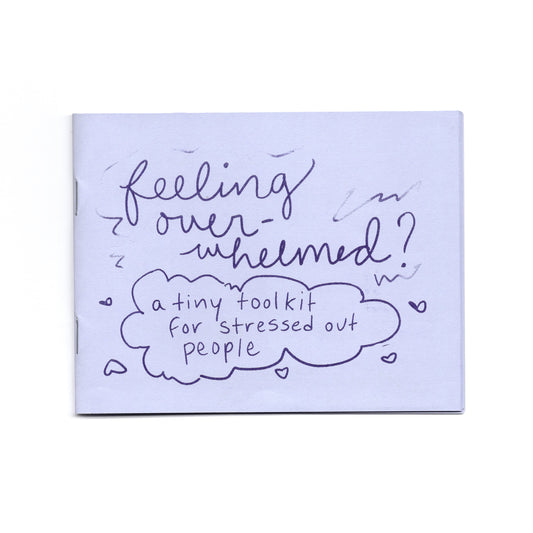 feeling
over-
whelmed?
a tiny toolkit
for stressed out
people